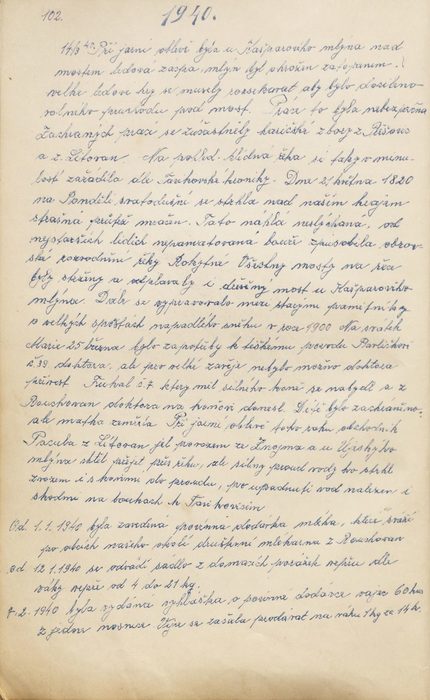 102. 1940.
14/3 40 Při jarní oblevě byla u Kašparového mlýna nad
mostem ledová zácpa, mlýn byl ohrožen zatopením.
Velké ledové kry se musely rozsekávat aby bylo dosaženo
volného průvodu pod most. Práce to byla nebezpečna
Záchranných prací se zúčastnily hasičské sbory z Přísov
a z Litovan. Na pohled klidná řeka si taky v minu-
losti zařádila dle Tavíkovské kroniky. Dne 21. května 1820
na Pondělí svatodušní se strhla nad naším krajem
strašná průtrž mračen. Tato náhlá neslýchaná, od
nejstarších lidích nepamatovaná bouře způsobila obrov-
ské rozvodnění řeky Rokytné Všechny mosty na řece
byly strženy a odplavaly i dnešný most u Kašparového
mlýna. Dále se vypravovalo mezi starými pamětníky
o velkých spoustách napadlého sněhu v roce 1900 Na svátek
Marie 25 března bylo zapotřeby k těžkému porodu
č 39 doktora, ale pro velké závěje nebylo možno doktora
přivést. č 7 který měl silného koně se nabydl a z
Rouchovan doktora na koňovi donesl. Dítě bylo zachráněno
ale matka zemřela Při jarní oblevě toho roku obchodník
Pacula z Litovan jel povozem ze Znojma a u Ujeského
mlýna chtěl přejet přes řeku, ale silný proud vody ho strhl
zvozem i s koňmi do proudu, po upadnutí vod nalezen i
skoňmi na loukach k Tavíkovicím.
Od 1. 1. 1940 byla zavedena povinna dodávka mléka, které sváží
po obcích našeho okolí družstevní mlékarna z Rouchovan
od 12. 1. 1940 se odvádí sádlo z domacích porážek vepřů dle
váhy vepře od 4 do 21 kg.
8. 2. 1940 byla vydána vyhláška, o povinné dodávce vajec 60 kus
z jedné nosnice se začala prodávat na váhu 1 kg za 14 k.